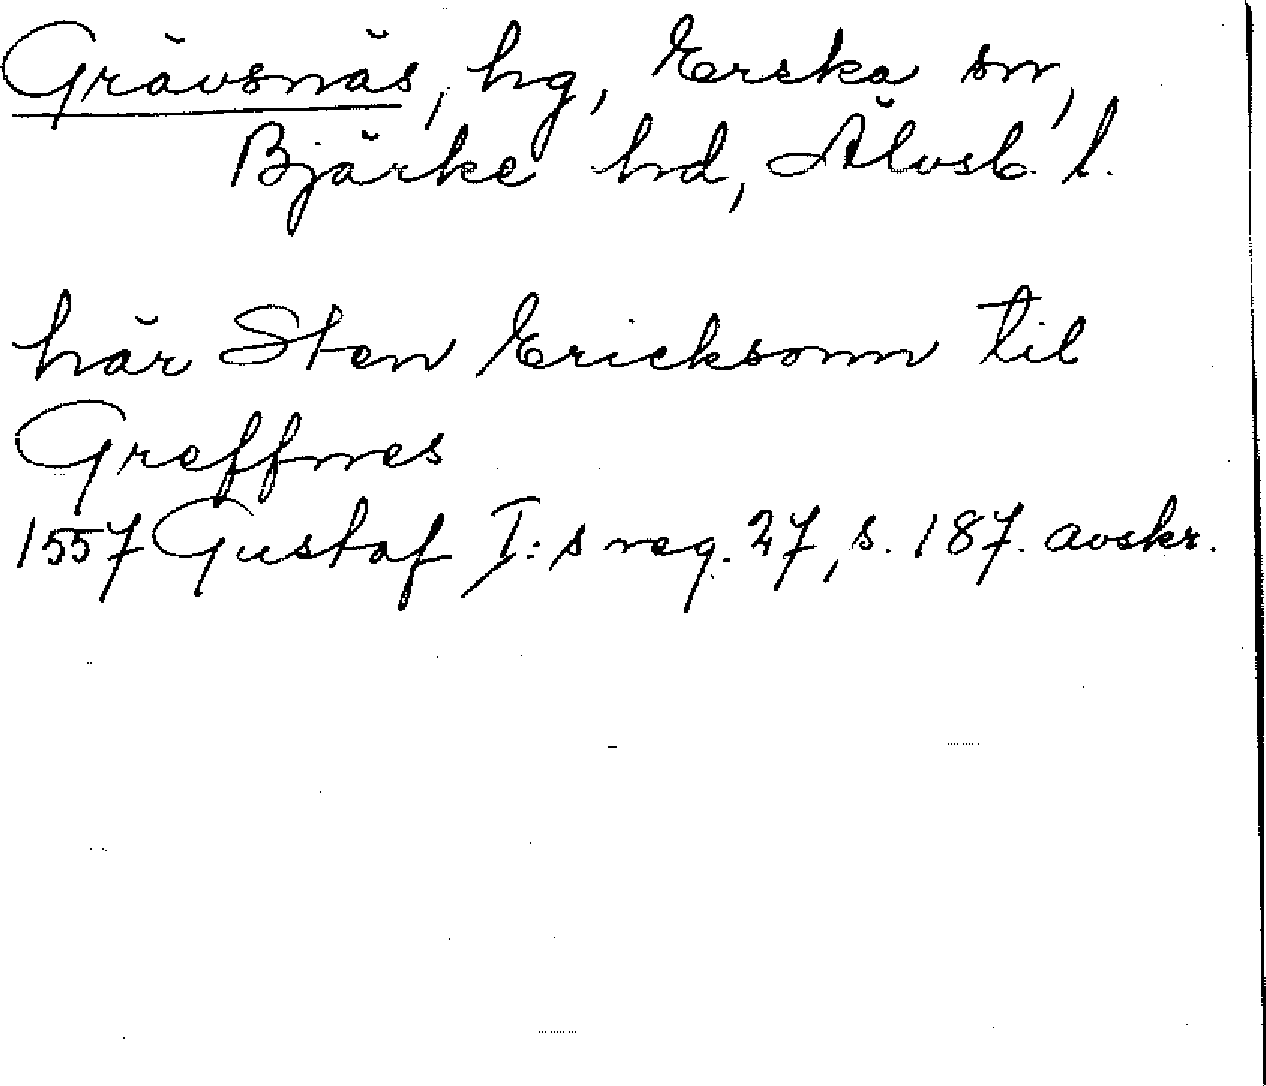 Grävsnäs, hg, Erska sn,
Bjärke hd, Älvsb. l.
här Sten Ericksonn til
Greffnes
1557 Gustaf I:s reg. 27, s. 187. avskr.